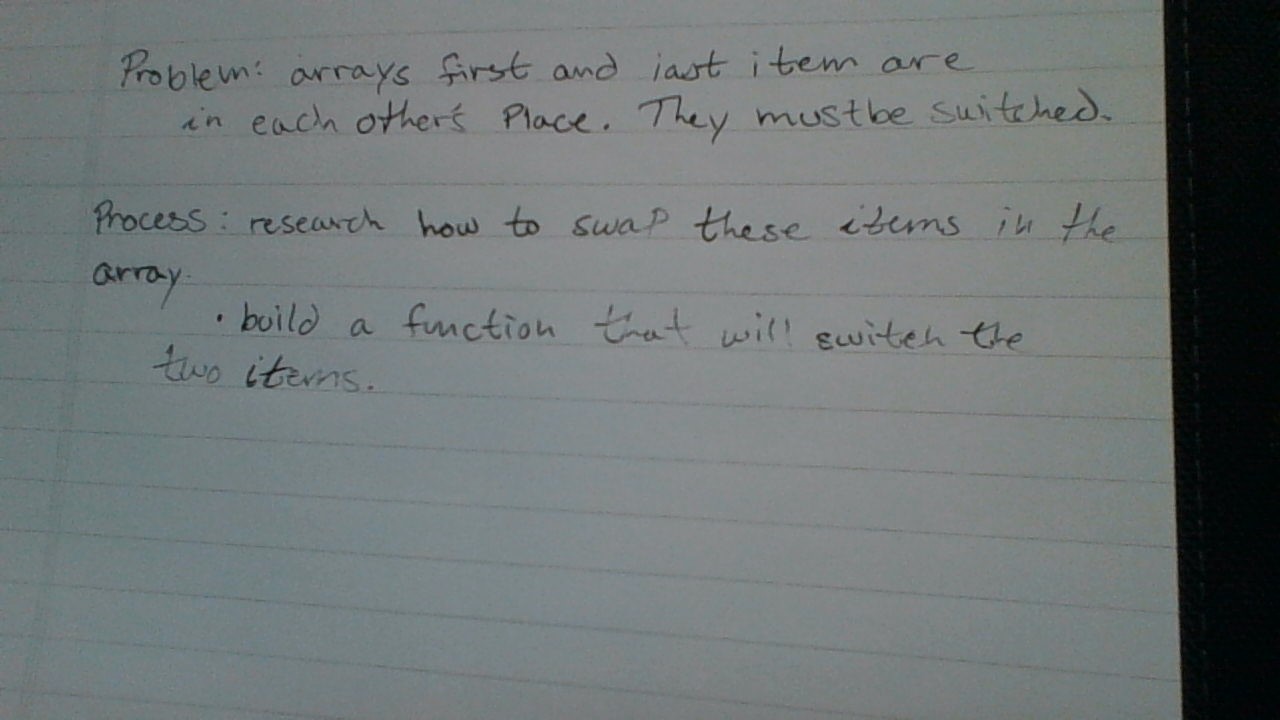 Problem: arrays first and last item are
in each other's Place. They must be switched.
Process: research how to swap these items in the
array.
• build a function that will switch the
two items.